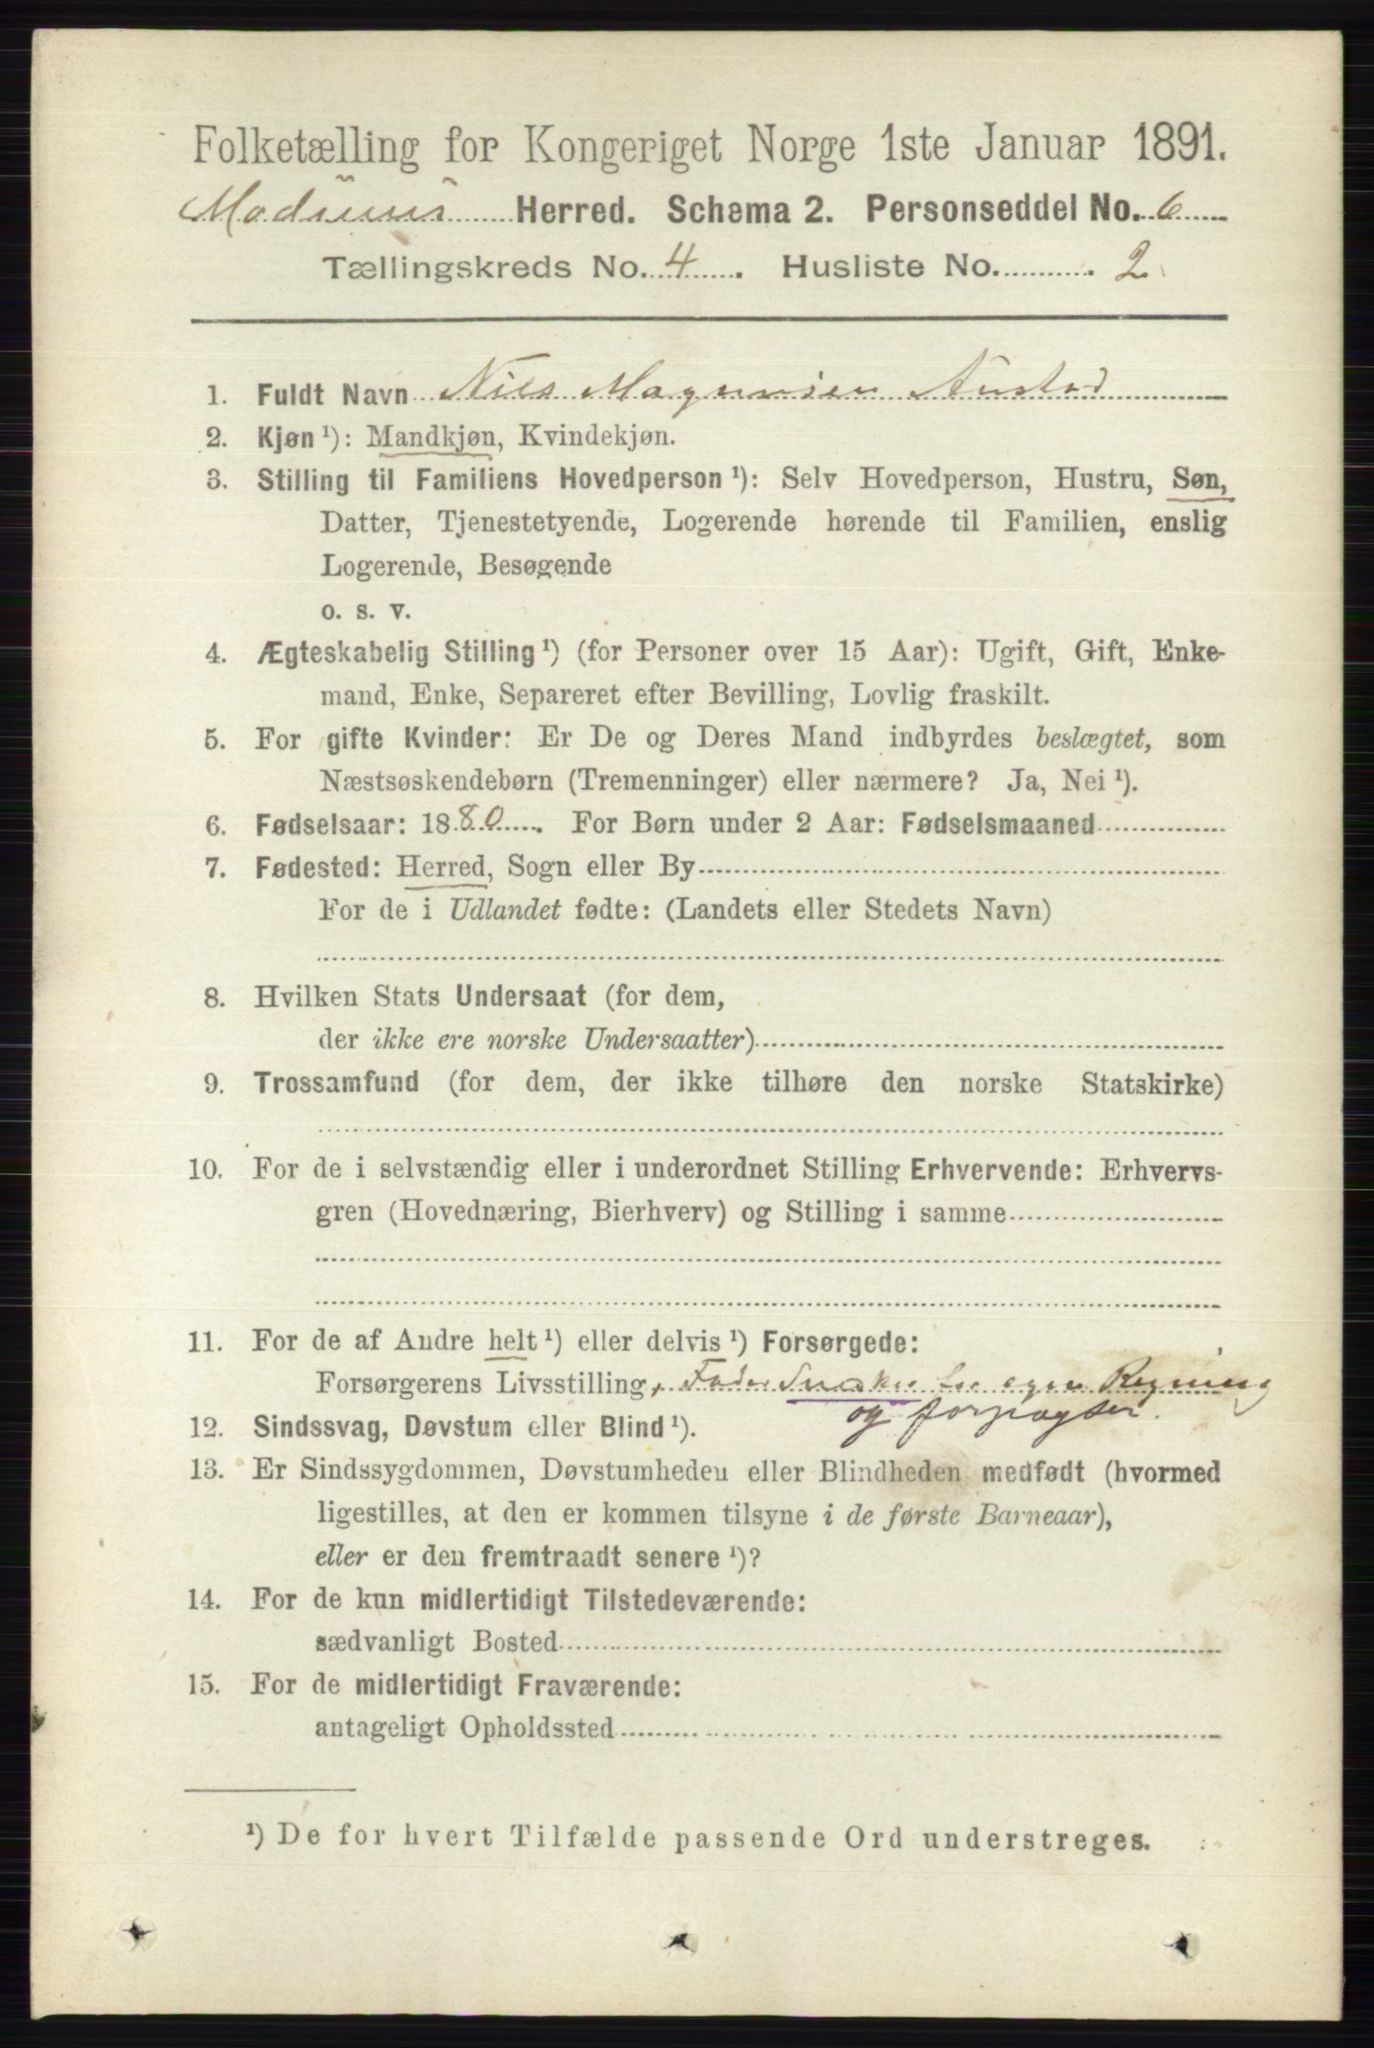 Folketælling for Kongeriget Norge 1ste Januar 1891.
Modums Herred. Schema 2. Personseddel No. 6
Tællingskreds No. 4. Husliste No. 2
1. Fuldt Navn Nils Magnusen Austad
2. Kjøn ¹): Mandkjøn, Kvindekjøn.
3. Stilling til Familiens Hovedperson ¹): Selv Hovedperson, Hustru, Søn,
Datter, Tjenestetyende, Logerende hørende til Familien, enslig
Logerende, Besøgende
o. s. v.
4. Ægteskabelig Stilling ¹) (for Personer over 15 Aar): Ugift, Gift, Enke-
mand, Enke, Separeret efter Bevilling, Lovlig fraskilt.
5. For gifte Kvinder: Er De og Deres Mand indbyrdes beslægtet, som
Næstsøskendebørn (Tremenninger) eller nærmere? Ja, Nei ¹).
6. Fødselsaar: 1880. For Børn under 2 Aar: Fødselsmaaned
7. Fødested: Herred, Sogn eller By
For de i Udlandet fødte: (Landets eller Stedets Navn)
8. Hvilken Stats Undersaat (for dem,
der ikke ere norske Undersaatter)
9. Trossamfund (for dem, der ikke tilhøre den norske Statskirke)
10. For de i selvstændig eller i underordnet Stilling Erhvervende: Erhvervs-
gren (Hovednæring, Bierhverv) og Stilling i samme
11. For de af Andre helt ¹) eller delvis ¹) Forsørgede:
Forsørgerens Livsstilling, Fader Snedker for egen Regning
og forpagter.
12. Sindssvag, Døvstum eller Blind ¹).
13. Er Sindssygdommen, Døvstumheden eller Blindheden medfødt (hvormed
ligestilles, at den er kommen tilsyne i de første Barneaar),
eller er den fremtraadt senere ¹)?
14. For de kun midlertidigt Tilstedeværende:
sædvanligt Bosted
15. For de midlertidigt Fraværende:
antageligt Opholdssted
¹) De for hvert Tilfælde passende Ord understreges.